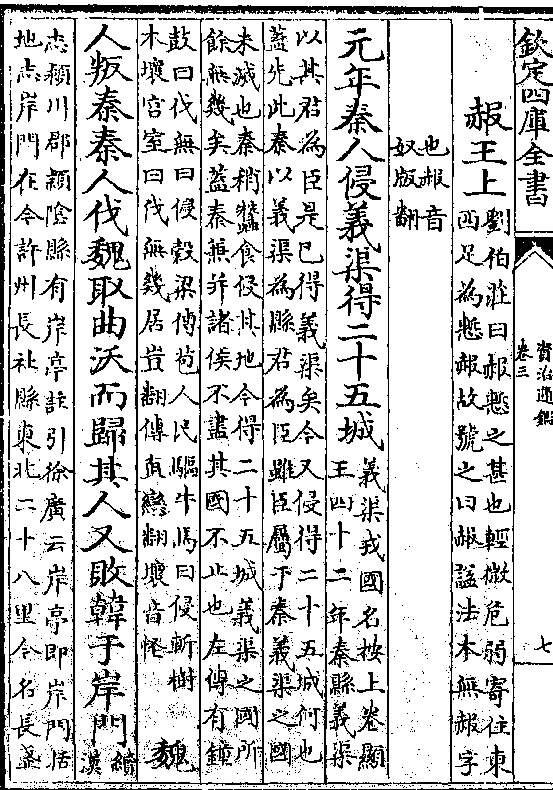 欽定四庫全書
資治通鑑
卷三
七
赧王上
劉伯莊曰赧慙之甚也輕微危弱寄住東
西足為慙赧故號之曰赧諡法本無赧字
也赧音
奴版翻
元年秦人侵義渠得二十五城
義渠戎國名按上卷顯
王四十二年秦縣義渠
以其君為臣是巳得義渠矣今又侵得二十五城何也
蓋先此秦以義渠為縣君為臣雖臣屬于秦義渠之國
未滅也秦稍蠶食侵其地今得二十五城義渠之國所
餘無幾矣蓋秦無并諸侯不盡其國不止也左傳有鐘
鼓曰伐無曰侵穀梁傳苞人民驅牛馬曰侵斬樹
木壞宫室曰伐無幾居豈翻傳直戀翻壞音怪
魏
人叛秦秦人伐魏取曲沃而歸其人又敗韓于岸門
續
漢
志潁川郡潁陰縣有岸亭註引徐廣云岸亭即岸門括
地志岸門在今許州長社縣東北二十八里今名長